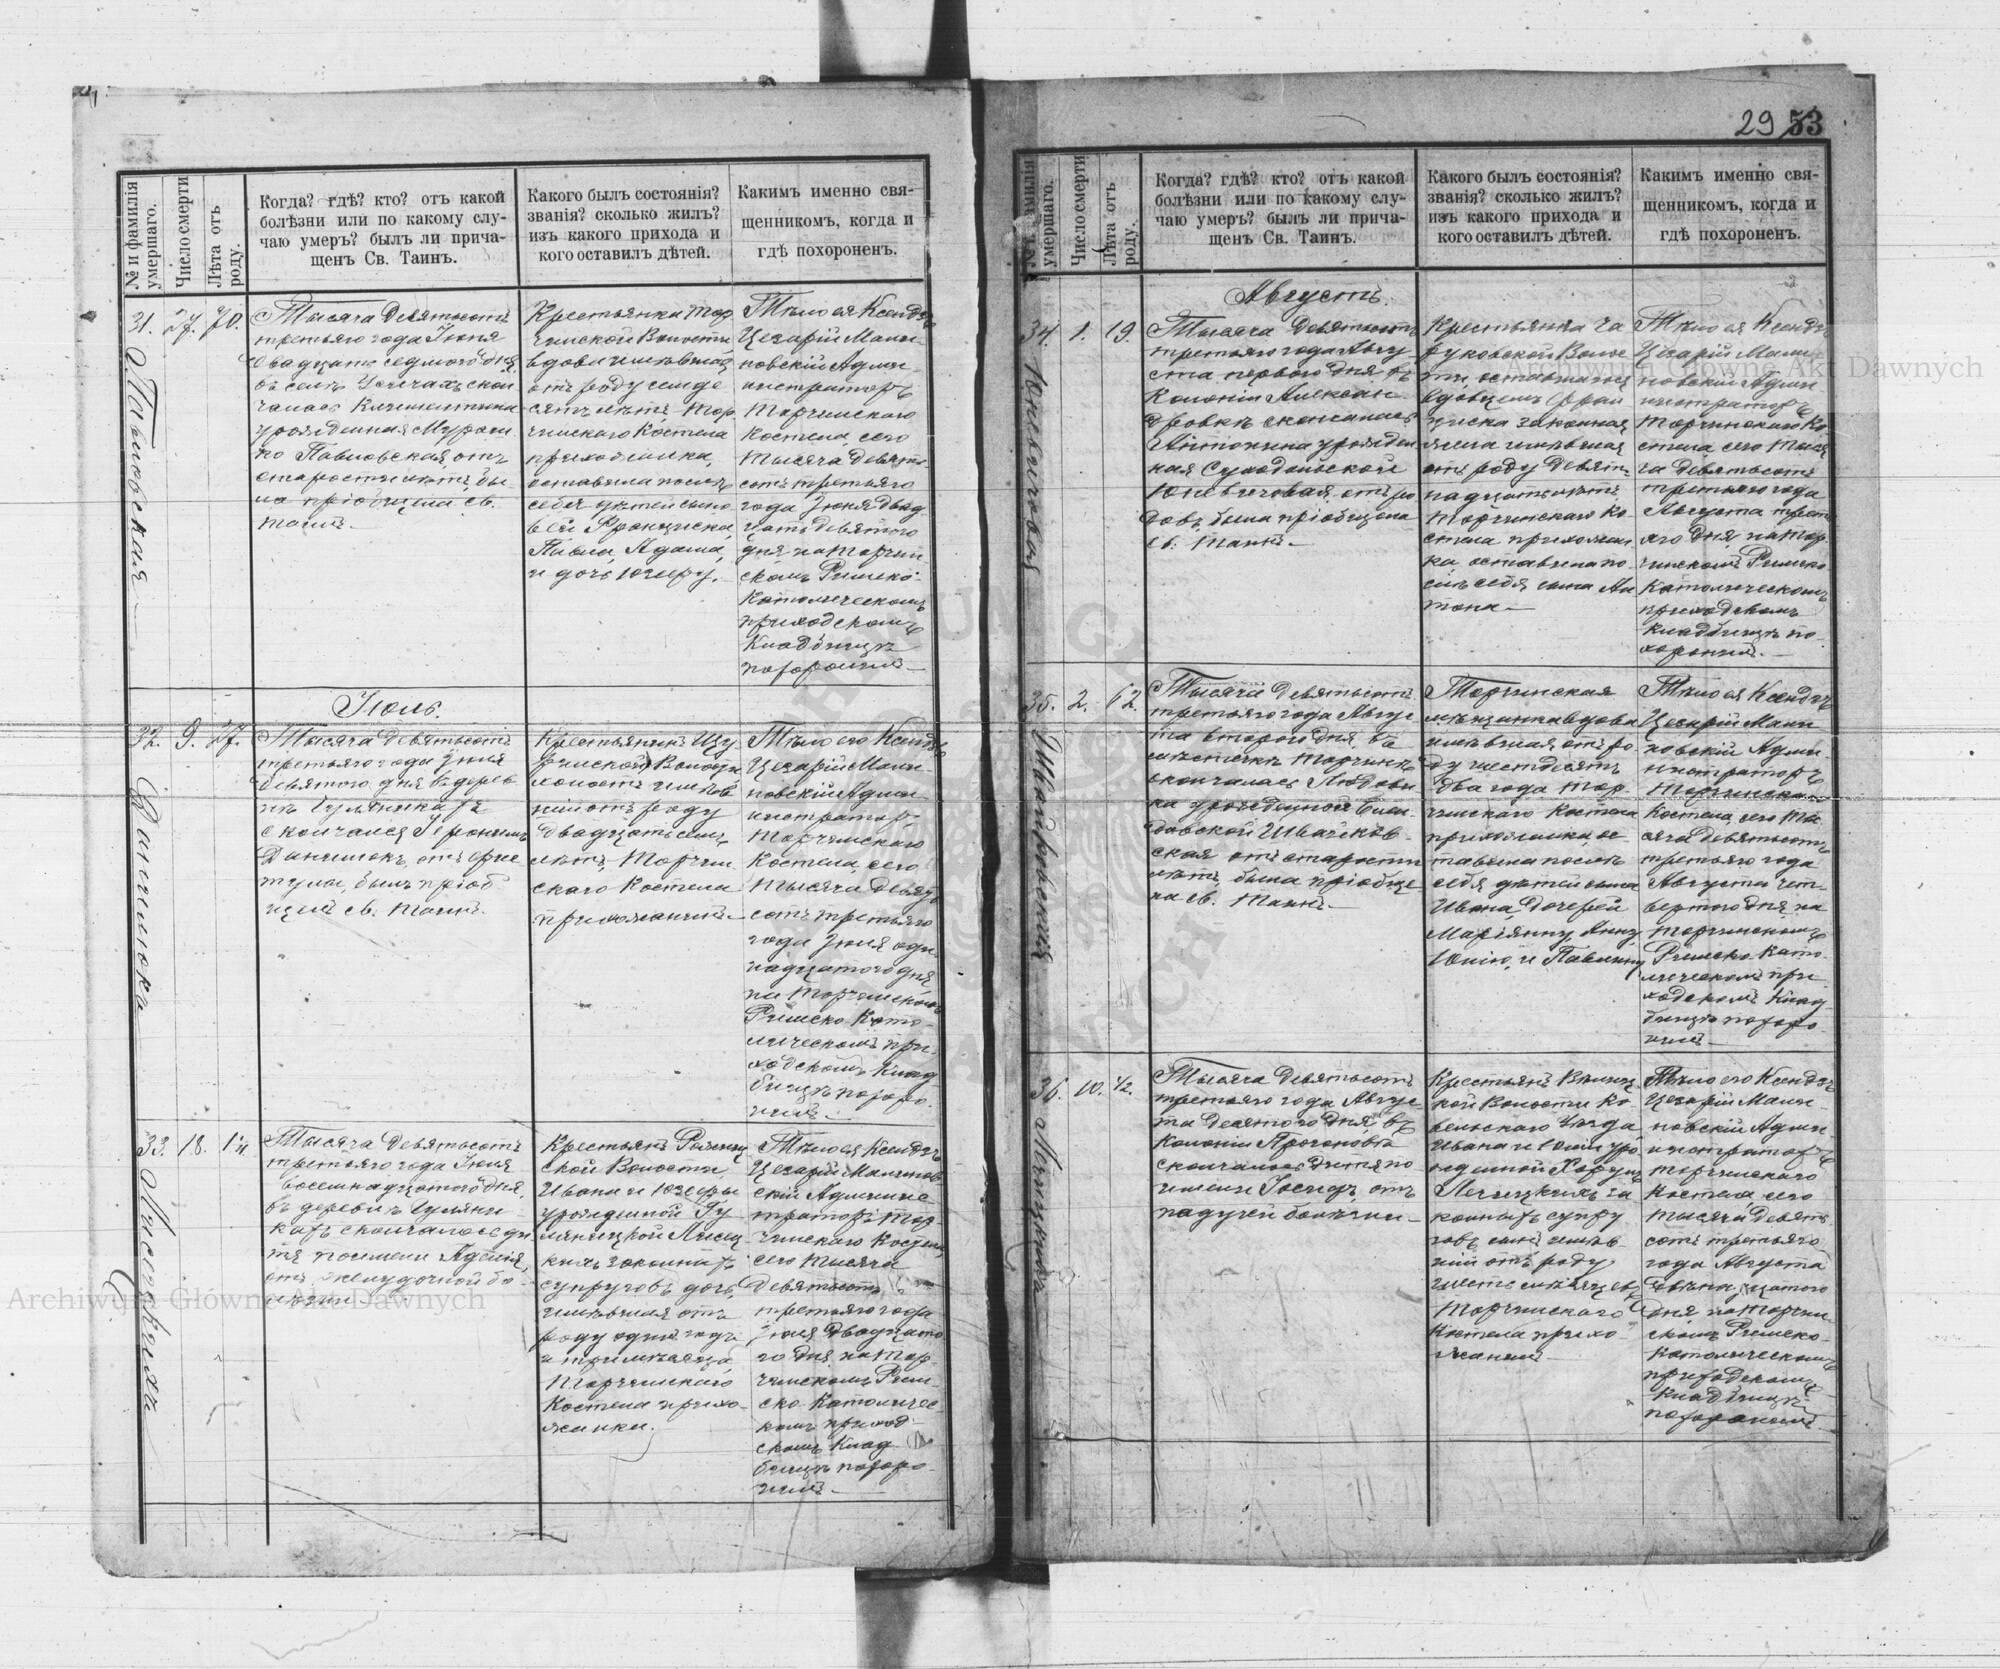 29 53
№ и фамилія умершаго.
Число смерти
Лѣта отъ роду.
Когда? гдѣ? кто? отъ какой
болѣзни или по какому слу-
чаю умеръ? былъ ли прича-
щенъ Св. Таинъ.
Какого былъ состоянія?
званія? сколько жилъ?
изъ какого прихода и
кого оставилъ дѣтей.
Какимъ именно свя-
щенникомъ, когда и
гдѣ похороненъ.
31.
Павловская
27.
70.
Тысяча девятьсотъ
третьяго года Іюня
двадцать седьмого дня
въ селѣ скон
чалась Клементина
урожденная
Павловская отъ
старости лѣтъ, бы
ла пріобщена св.
таинъ.
Крестьянка Тор
чинской Волости
вдова имѣвшая
отъ роду семде
сятъ лѣтъ Тор
чинскаго Костела
прихожанка,
оставила послѣ
себя дѣтей сыно
вей Франциска,
Павла, Адама,
и дочь Юзефу.
Тѣло ея Ксендзъ
Цезарій Мали
новскій Адми-
нистраторъ
Торчинскаго
Костела, сего
тысяча девять
сотъ третьяго
года Іюня двад
цать девятого
дня на Торчин
скомъ Римско-
Католическомъ
приходскомъ
Кладбищѣ
похоронилъ
Іюль.
32.
Данилюкъ
9.
27.
Тысяча девятьсотъ
третьяго года Іюля
девятого дня въ дерев
нѣ Гуляникахъ
скончался Іеронимъ
Данилюкъ, отъ
былъ пріоб
щенъ св. таинъ.
Крестьянинъ
Волости
холостъ имѣв
шій отъ роду
двадцать семь
лѣтъ, Торчин
скаго Костела
прихожанинъ
Тѣло его Ксендзъ
Цезарій Мали
новскій Адми-
нистраторъ
Торчинскаго
Костела, сего
тысяча девять
сотъ третьяго
года Іюля оди
надцатого дня
на Торчинскомъ
Римско-Като-
лическомъ при
ходскомъ Клад
бищѣ похоро-
нилъ.
33.
18.
Тысяча девятьсотъ
третьяго года Іюля
восемнадцатого дня,
въ деревнѣ Гуляни
кахъ скончалось ди
тя по имени
отъ желудочной бо
лѣзни.
Крестьянъ
ской Волости,
Ивана и Юзефы
урожденной Гу
законныхъ
супруговъ дочь,
имѣвшая отъ
роду одинъ годъ
и три мѣсяца
Торчинскаго
Костела прихо-
жанки.
Тѣло ея Ксендзъ
Цезарій Малинов
скій Админис
траторъ Тор-
чинскаго Костела
сего тысяча
девятьсотъ
третьяго года
Іюля двадцато
го дня на Тор-
чинскомъ Рим
ско-Католичес
комъ приход-
скомъ Клад
бищѣ похоро-
нилъ.
№ и фамилія умершаго.
Число смерти
Лѣта отъ роду.
Когда? гдѣ? кто? отъ какой
болѣзни или по какому слу-
чаю умеръ? былъ ли прича-
щенъ Св. Таинъ.
Какого былъ состоянія?
званія? сколько жилъ?
изъ какого прихода и
кого оставилъ дѣтей.
Какимъ именно свя-
щенникомъ, когда и
гдѣ похороненъ.
Августъ.
34.
1.
19.
Тысяча девятьсотъ
третьяго года Авгу
ста перваго дня въ
Колоніи Алексан
дровкѣ скончалась
Антонина урожден
ная Суходольской
отъ ро
довъ, была пріобщена
св. таинъ.
Крестьянка Ча
руковской Волос
ти оставшагося
вдовцемъ Фран
циска законная
жена имѣвшая
отъ роду девят-
надцать лѣтъ
Торчинскаго Ко
стела прихожан
ка, оставила по-
слѣ себя сына Ан
тона.
Тѣло ея Ксендзъ
Цезарій Мали
новскій Адми
нистраторъ
Торчинскаго Ко
стела сего тыся
ча девятьсотъ
третьяго года
Августа треть
яго дня, на Тор
чинскомъ Римско
Католическомъ
приходскомъ
Кладбищѣ по-
хоронилъ.
35.
2.
62.
Тысяча девятьсотъ
третьяго года Авгус
та второго дня, въ
мѣстечкѣ Торчинѣ
скончалась Людови
ка урожденной
ская отъ старости
лѣтъ, была пріобще
на св. таинъ.
Торчинская
мѣщанка вдова
имѣвшая отъ ро
ду шестдесятъ
два года, Тор-
чинскаго Костела
прихожанка, ос
тавила послѣ
себя дѣтей сына
Ивана, дочерей
Маріянну, Анну,
Юлію, и Павлину
Тѣло ея Ксендзъ
Цезарій Мали
новскій Адми
нистраторъ
Торчинскаго
Костела, сего ты
сяча девятьсотъ
третьяго года
Августа чет-
вертого дня на
Торчинскомъ
Римско-Като-
лическомъ при
ходскомъ Клад
бищѣ похоро-
нилъ.
36.
10.
Тысяча девятьсотъ
третьяго года Авгус
та десятого дня, въ
Колоніи
скончалось дитя по
имени Іосифъ, отъ
падучей болѣзни
Крестьянъ
кой Волости Ко-
вельскаго Уѣзда
Ивана и Юліи уро
жденной
за
конныхъ супру
говъ сынъ имѣв-
шій отъ роду
шесть мѣсяцевъ
Торчинскаго
Костела прихо-
жанинъ
Тѣло его Ксендзъ
Цезарій Мали-
новскій Адми-
нистраторъ
Торчинскаго
Костела, сего
тысяча девять
сотъ третьяго
года Августа
дня, на Торчин
скомъ Римско-
Католическомъ
приходскомъ
Кладбищѣ
похоронилъ
Archiwum Główne Akt Dawnych
Archiwum Główne Akt Dawnych